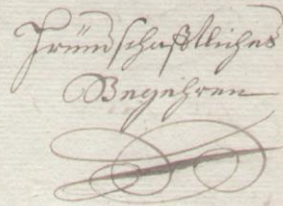 Fründschafftliches
Begehren